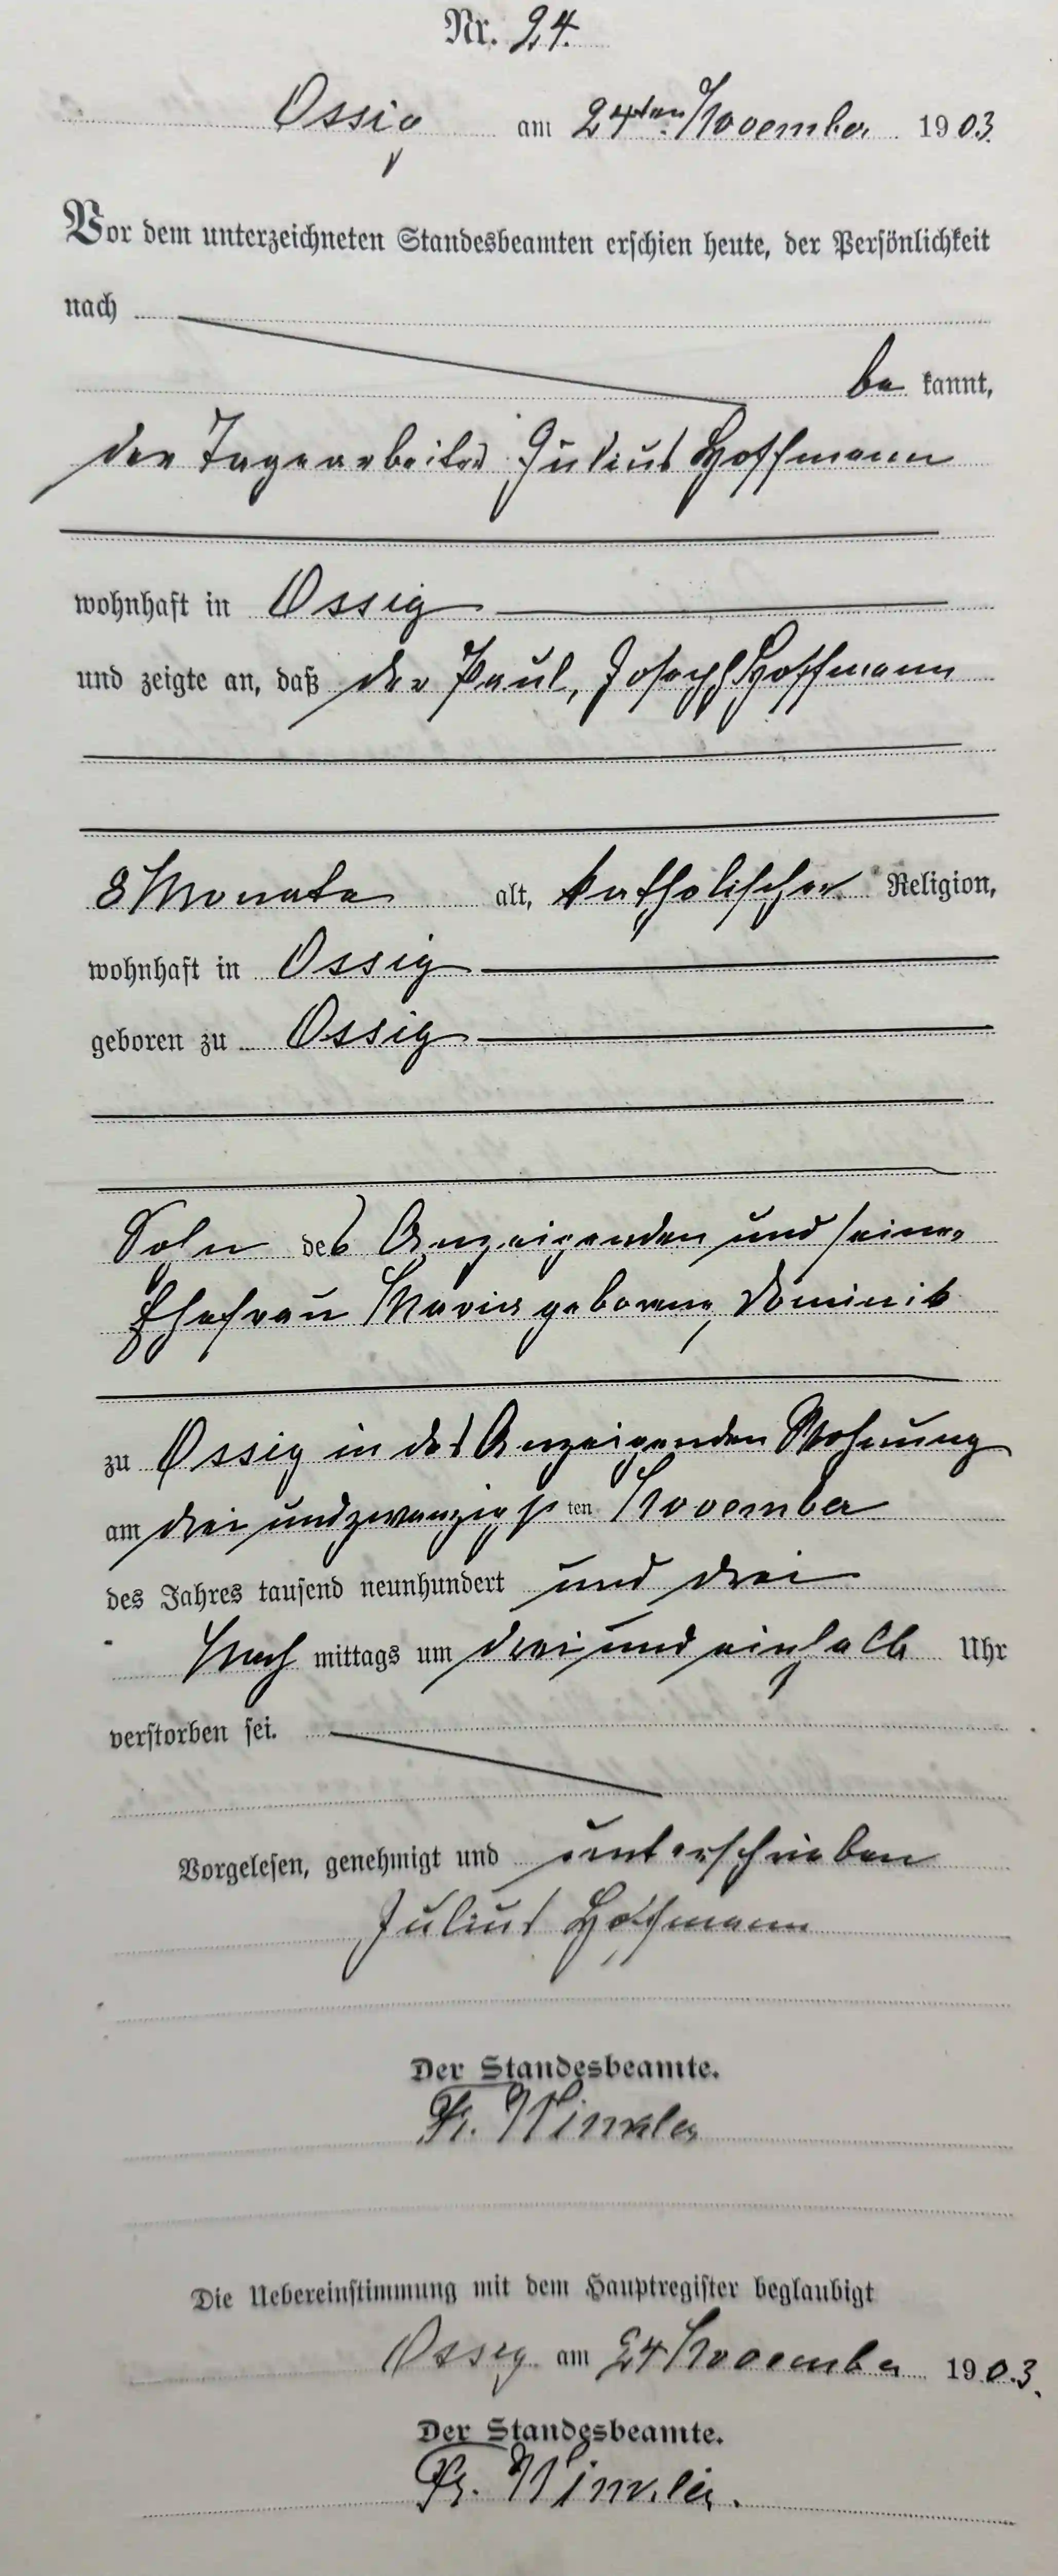 Nr. 24.
Ossig am 24ten November 1903.
Vor dem unterzeichneten Standesbeamten erschien heute, der Persönlichkeit
nach
be kannt,
der Tagearbeiter Julius Hoffmann
wohnhaft in Ossig
und zeigte an, daß der Paul, Joseph Hoffmann
8 Monate alt, katholischer Religion,
wohnhaft in Ossig
geboren zu Ossig
Sohn des Anzeigenden und seiner
Ehefrau Maria geborene Dominik
zu Ossig in des Anzeigenden Wohnung
am drei und zwanzigsten November
des Jahres tausend neunhundert und drei
Nach mittags um drei und einhalb Uhr
verstorben sei.
Vorgelesen, genehmigt und unterschrieben
Julius Hoffmann
Der Standesbeamte.
Fr. Winkler
Die Uebereinstimmung mit dem Hauptregister beglaubigt
Ossig am 24 November 1903.
Der Standesbeamte.
Fr. Winkler.